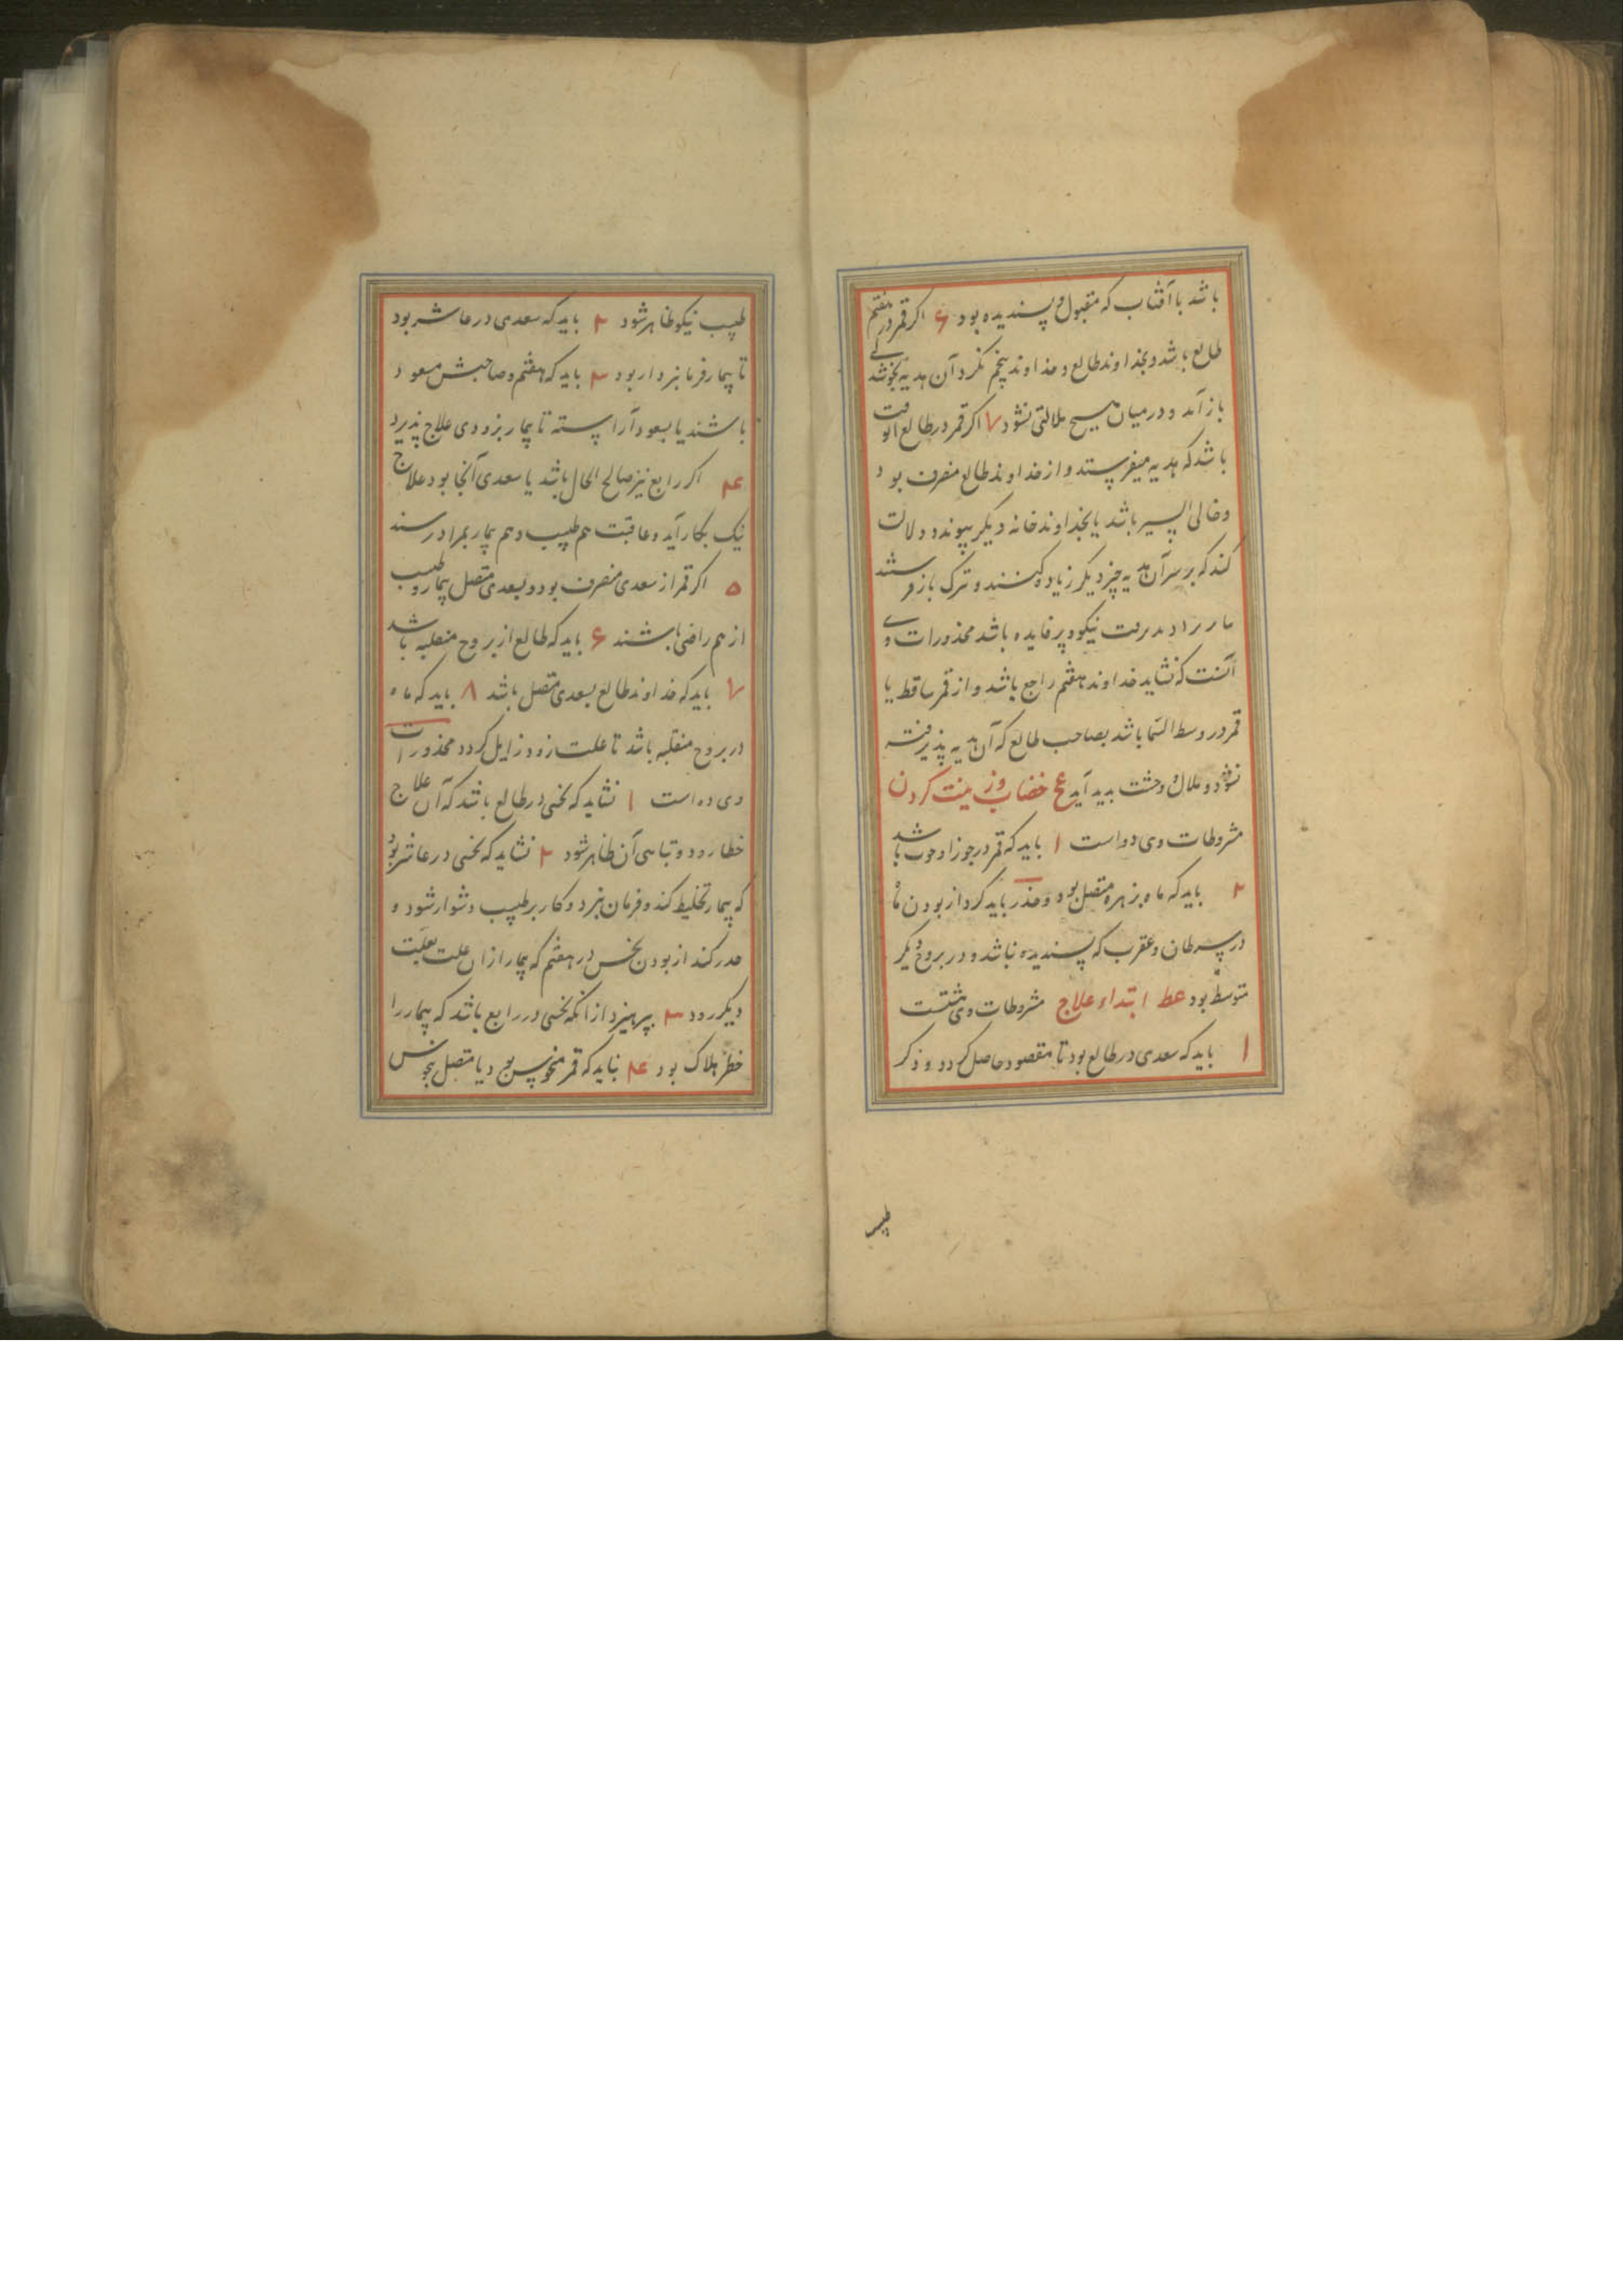 باشد با آفتاب که مقبول و پسندیده بود ۶ اگر قمر در هفتم
طالع باشد و بخداوند طالع و خداوند پنجم نگرد آن هدیه بخوشدلی
باز آید و در میان هیچ ملالتی نشود ۷ اگر قمر در طالع الوقت
باشد که هدیه میفرستد و از خداوند طالع منصرف بود
و خالی السیر باشد یا بخداوند خانه دیگر پیوندد دلالت
کند که بر سر آن هدیه چیز دیگر زیاده کنند و ترک باز فرستند
نیکو و پر فایده باشد محذورات وی
آنست که نشاید خداوند هفتم راجع باشد و از قمر ساقط یا
قمر در وسط السما باشد بصاحب طالع که آن هدیه پذیرفته
نشود و ملال و وحشت پدید آید عح خضاب و زینت کردن
مشروطات وی دو است ۱ باید که قمر در جوزا و حوت باشد
۲ باید که ماه بزهره متصل بود و حذر باید کرد از بودن ماه
در سرطان و عقرب که پسندیده نباشد و در بروج دیگر
متوسط بود عط ابتداء علاج مشروطات وی هشتست
۱ باید که سعدی در طالع بود تا مقصود حاصل گردد و ذکر
طبیب
طبیب نیکو ظاهر شود ۲ باید که سعدی در عاشر بود
تا بیمار فرمانبردار بود ۳ باید که هفتم و صاحبش مسعود
باشند یا بسعود آراسته تا بیمار بزودی علاج پذیرد
۴ اگر رابع نیز صالح الحال باشد یا سعدی آنجا بود علاج
نیک بکار آید و عاقبت هم طبیب و هم بیمار بمراد رسند
۵ اگر قمر از سعدی منصرف بود و بسعدی متصل بیمار و طبیب
از هم راضی باشند ۶ باید که طالع از بروج منقلبه باشد
۷ باید که خداوند طالع بسعدی متصل باشد ۸ باید که ماه
در بروج منقلبه باشد تا علت زود زایل گردد محذورات
وی ده است ۱ نشاید که نحسی در طالع باشد که آن علاج
خطا رود و تباهی آن ظاهر شود ۲ نشاید که نحسی در عاشر بود
که بیمار تخلیط کند و فرمان نبرد و کار بر طبیب دشوار شود و
حذر کند از بودن نحس در هفتم که بیمار از ان علت بعلت
دیگر رود ۳ بپرهیزد از انکه نحسی در رابع باشد که بیمار را
خطر هلاک بود ۴ نباید که قمر منحوس بود یا متصل بنحوس